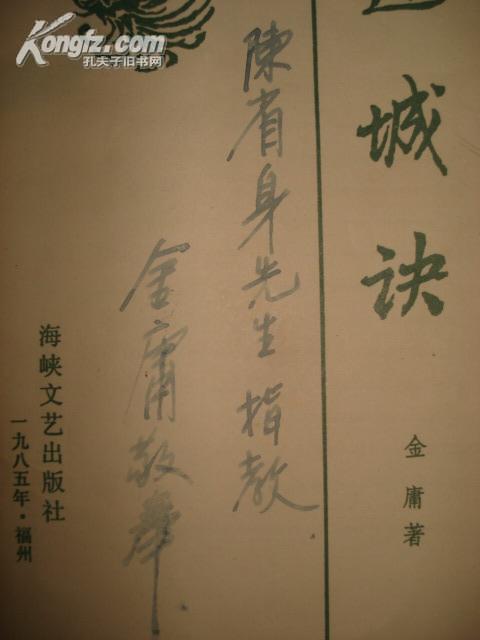 Kongfz.com
孔夫子旧书网
城诀
金庸著
陳省身先生指教
金庸敬奉
海峡文艺出版社
一九八五年·福州